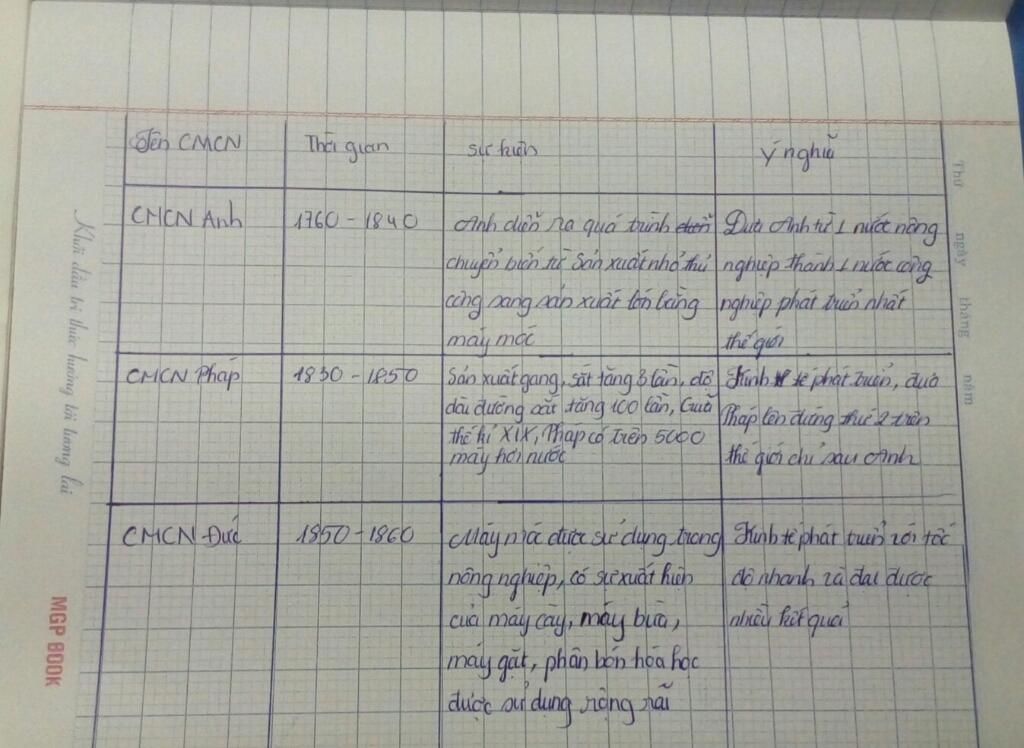 Tên CMCN
Thời gian
sự kiện
ý nghĩa
CMCN Anh
1760 - 1840
Anh diễn ra quá trình
chuyển biến từ sản xuất nhỏ thủ
công sang sản xuất lớn bằng
máy móc
Đưa Anh từ 1 nước nông
nghiệp thành 1 nước công
nghiệp phát triển nhất
thế giới
CMCN Pháp
1830 - 1850
Sản xuất gang, sắt tăng 3 lần, độ
dài đường sắt tăng 100 lần, Giữa
thế kỉ XIX, Pháp có trên 5000
máy hơi nước
Kinh tế phát triển, đưa
Pháp lên đứng thứ 2 trên
thế giới chỉ sau Anh
CMCN Đức
1850 - 1860
Máy móc được sử dụng trong
nông nghiệp, có sự xuất hiện
của máy cày, máy bừa,
máy gặt, phân bón hóa học
được sử dụng rộng rãi
Kinh tế phát triển với tốc
độ nhanh và đạt được
nhiều kết quả
Khởi đầu tri thức hướng tới tương lai
MGP BOOK
Thứ ngày tháng năm